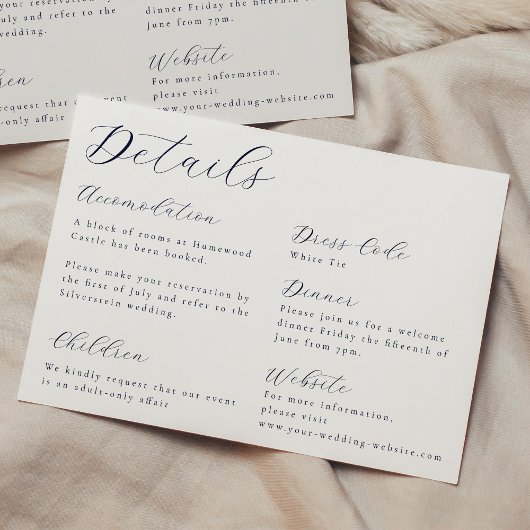 July and refer to the
wedding.
dinner Friday the fifteenth
June from 7pm.
Website
For more information,
please visit
www.your-wedding-website.com
request that our event
adult-only affair
Details
Accomodation
A block of rooms at Homewood
Castle has been booked.
Please make your reservation by
the first of July and refer to the
Silverstein wedding.
Children
We kindly request that our event
is an adult-only affair
Dress Code
White Tie
Dinner
Please join us for a welcome
dinner Friday the fifteenth of
June from 7pm.
Website
For more information,
please visit
www.your-wedding-website.com